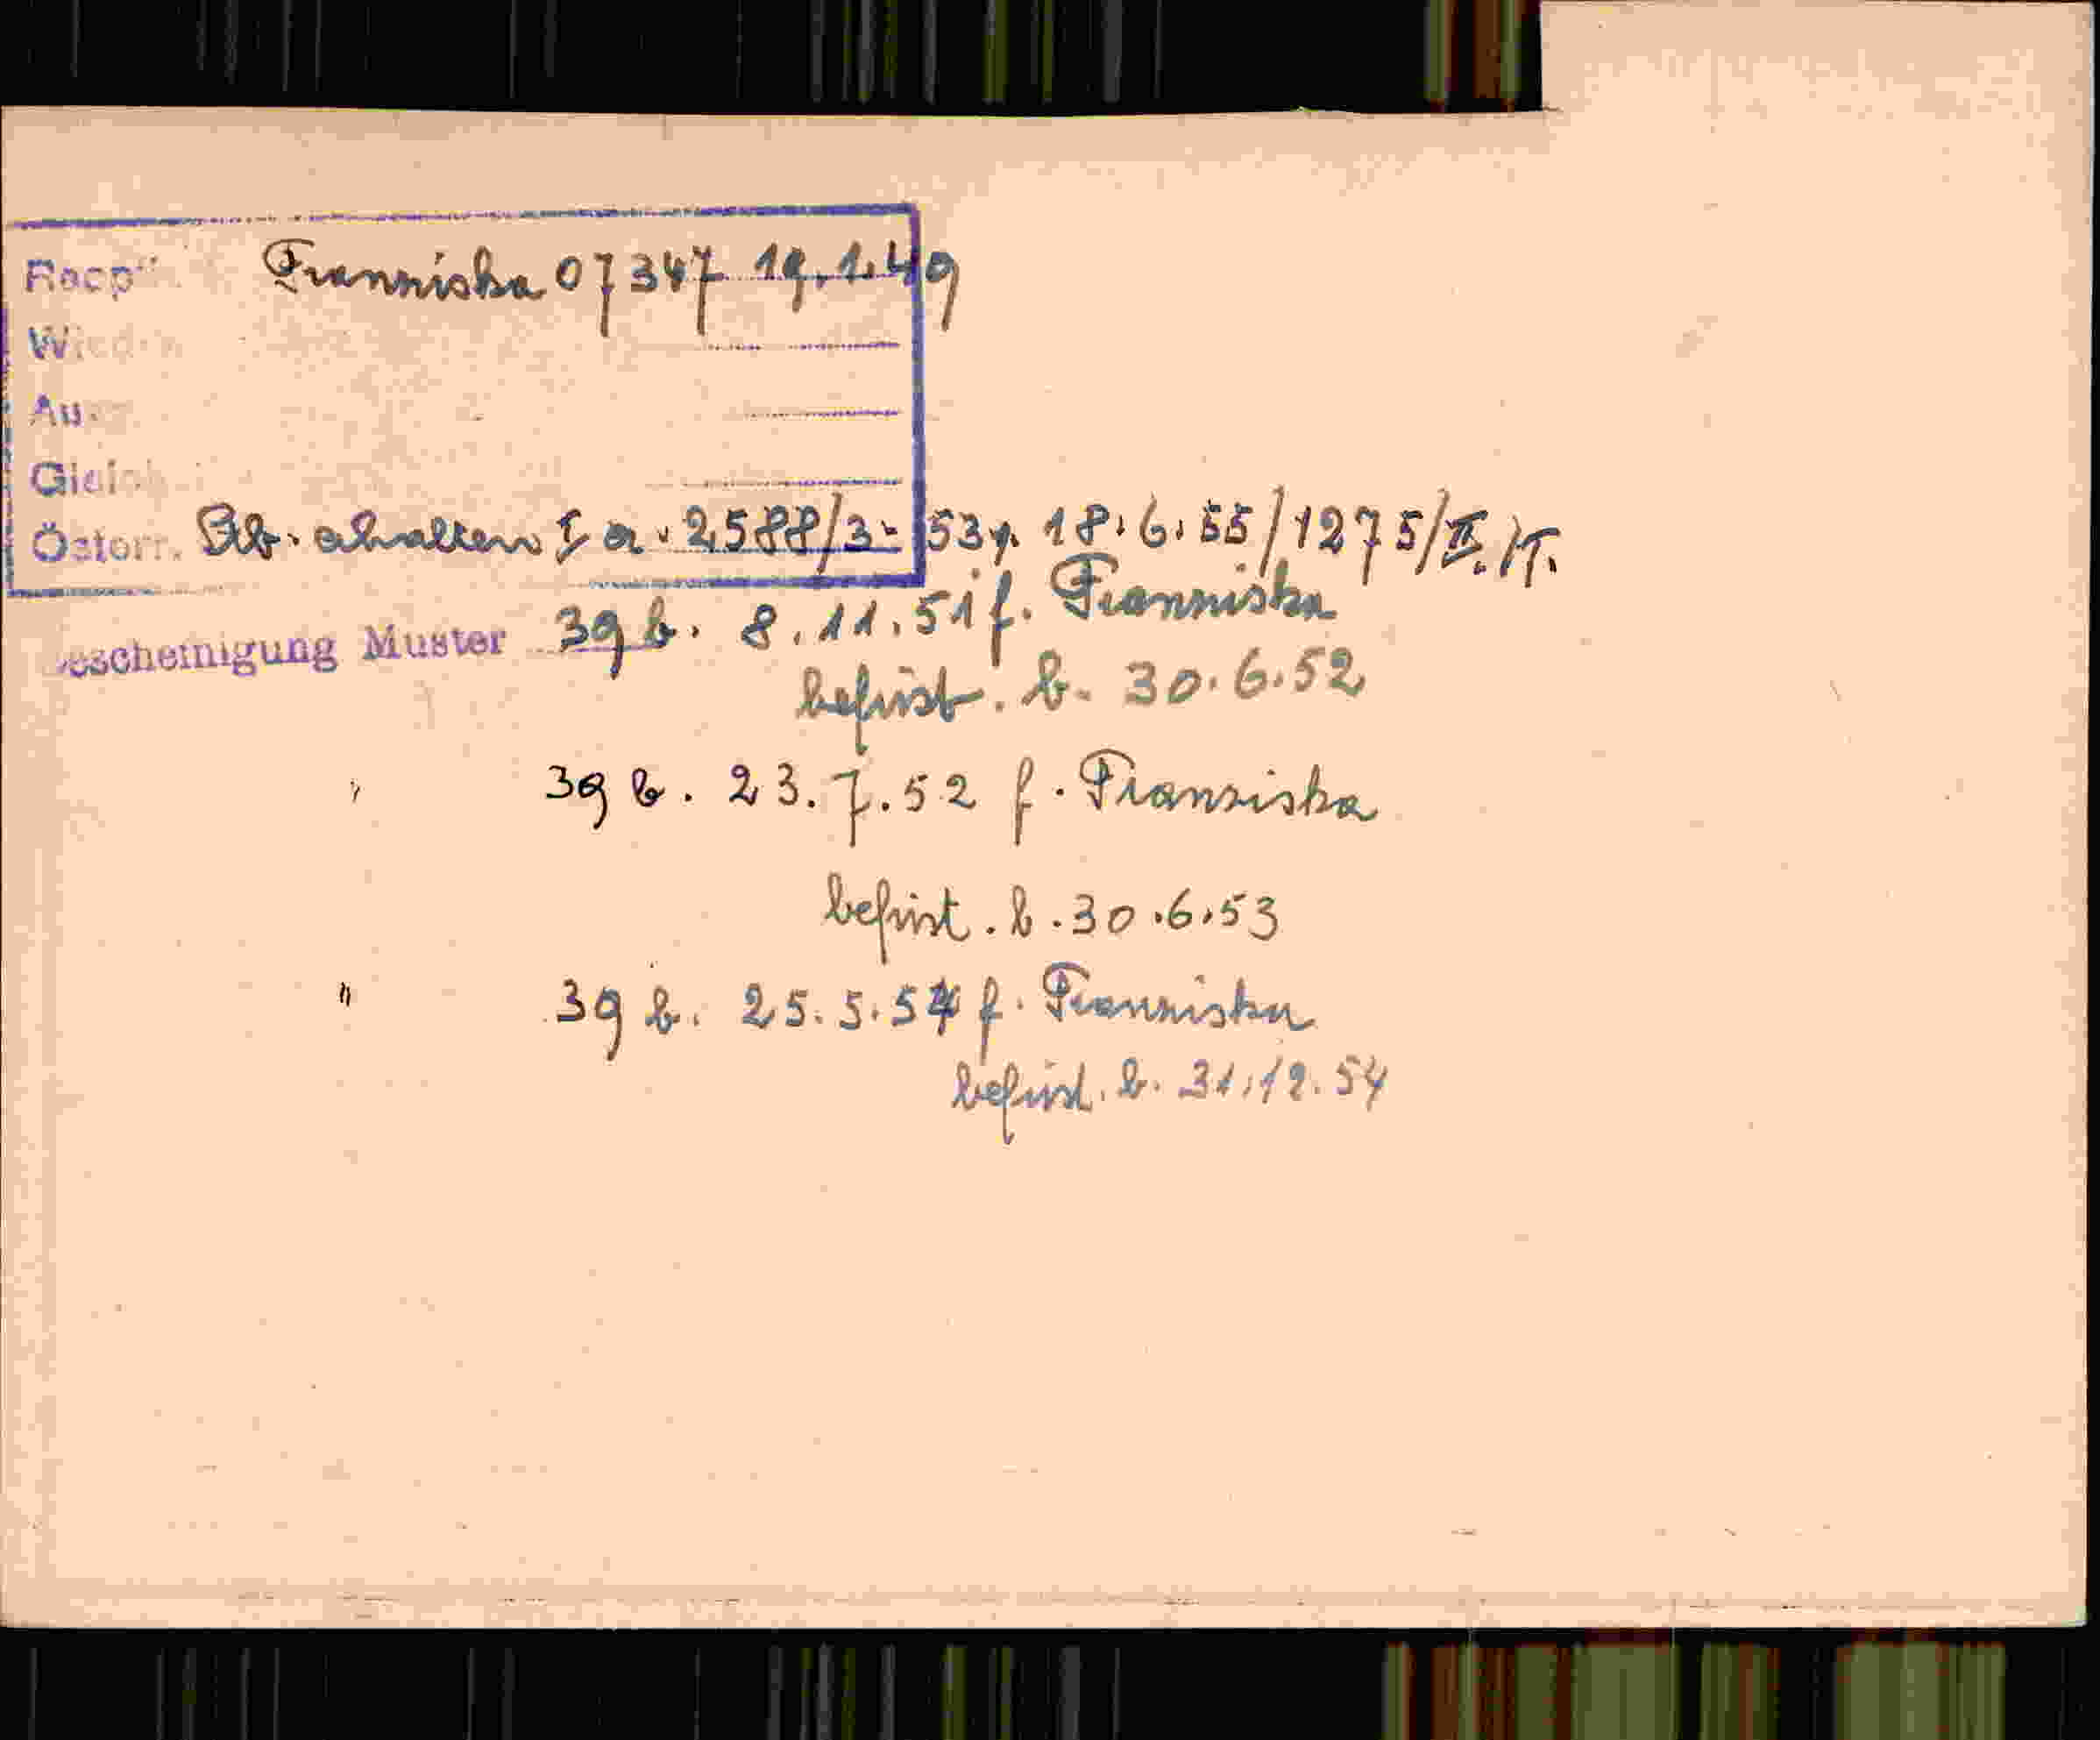 Franziska 07347 19.1.49
Au
Österr. Stb. erhalten I a. 2588/3-53 v. 18.6.55/1275/II./T.
escheinigung Muster 39 b. 8.11.51 f. Franziska
befrist. b. 30.6.52
" 39 b. 23.7.52 f. Franziska
befrist. b. 30.6.53
" 39 b. 25.5.54 f. Franziska
befrist. b. 31.12.54